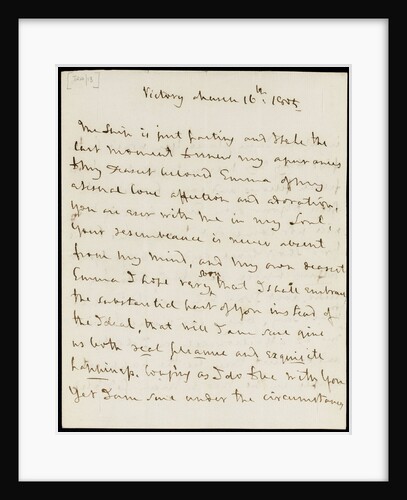 Victory March 16th: 1805
The Ship is just parting and I take the
last moment to renew my assurances
to My Dearest beloved Emma of my
eternal love affection and adoration,
you are ever with me in my Soul,
your resemblance is never absent
from my mind, and my own dearest
Emma I hope very soon that I shall embrace
the substantial part of you instead of
the Ideal, that will I am sure give
us both real pleasure and exquisite
happiness. longing as I do to be with you
yet I am sure under the circumstances